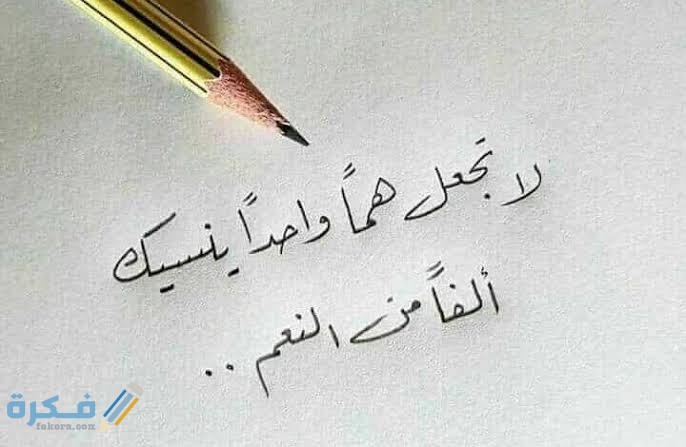 لا تجعل همّاً واحداً ينسيك
ألفاً من النعم ..
فكرة
fekera.com